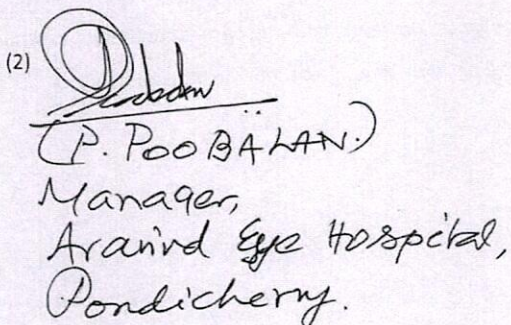 (2)
(P. POOBALAN.)
Manager,
Aravind Eye Hospital,
Pondicherry.